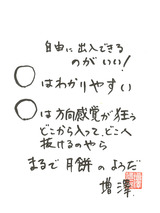 自由に出入できる
のがいい!
○はわかりやすい
○は方向感覚が狂う
どこから入って、どこへ
抜けるのやら
まるで月餅のようだ
増澤